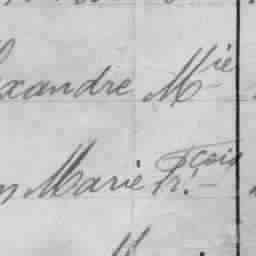 exandre M^ie
Marie Fr.^çois